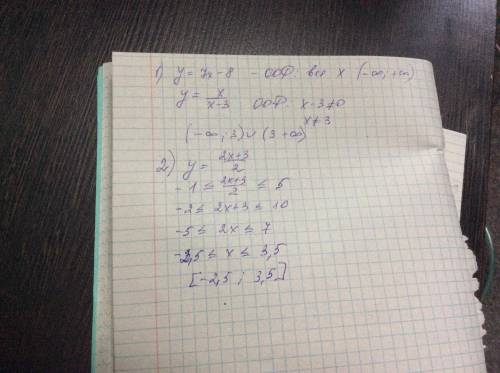 1) y = 7x - 8 - ООФ: все x (-∞; +∞)
y = x/(x-3) ООФ: x-3≠0
x≠3
(-∞; 3) ∪ (3 +∞)
2) y = (2x+3)/2
-1 ≤ (2x+3)/2 ≤ 5
-2 ≤ 2x+3 ≤ 10
-5 ≤ 2x ≤ 7
-2,5 ≤ x ≤ 3,5
[-2,5 ; 3,5]